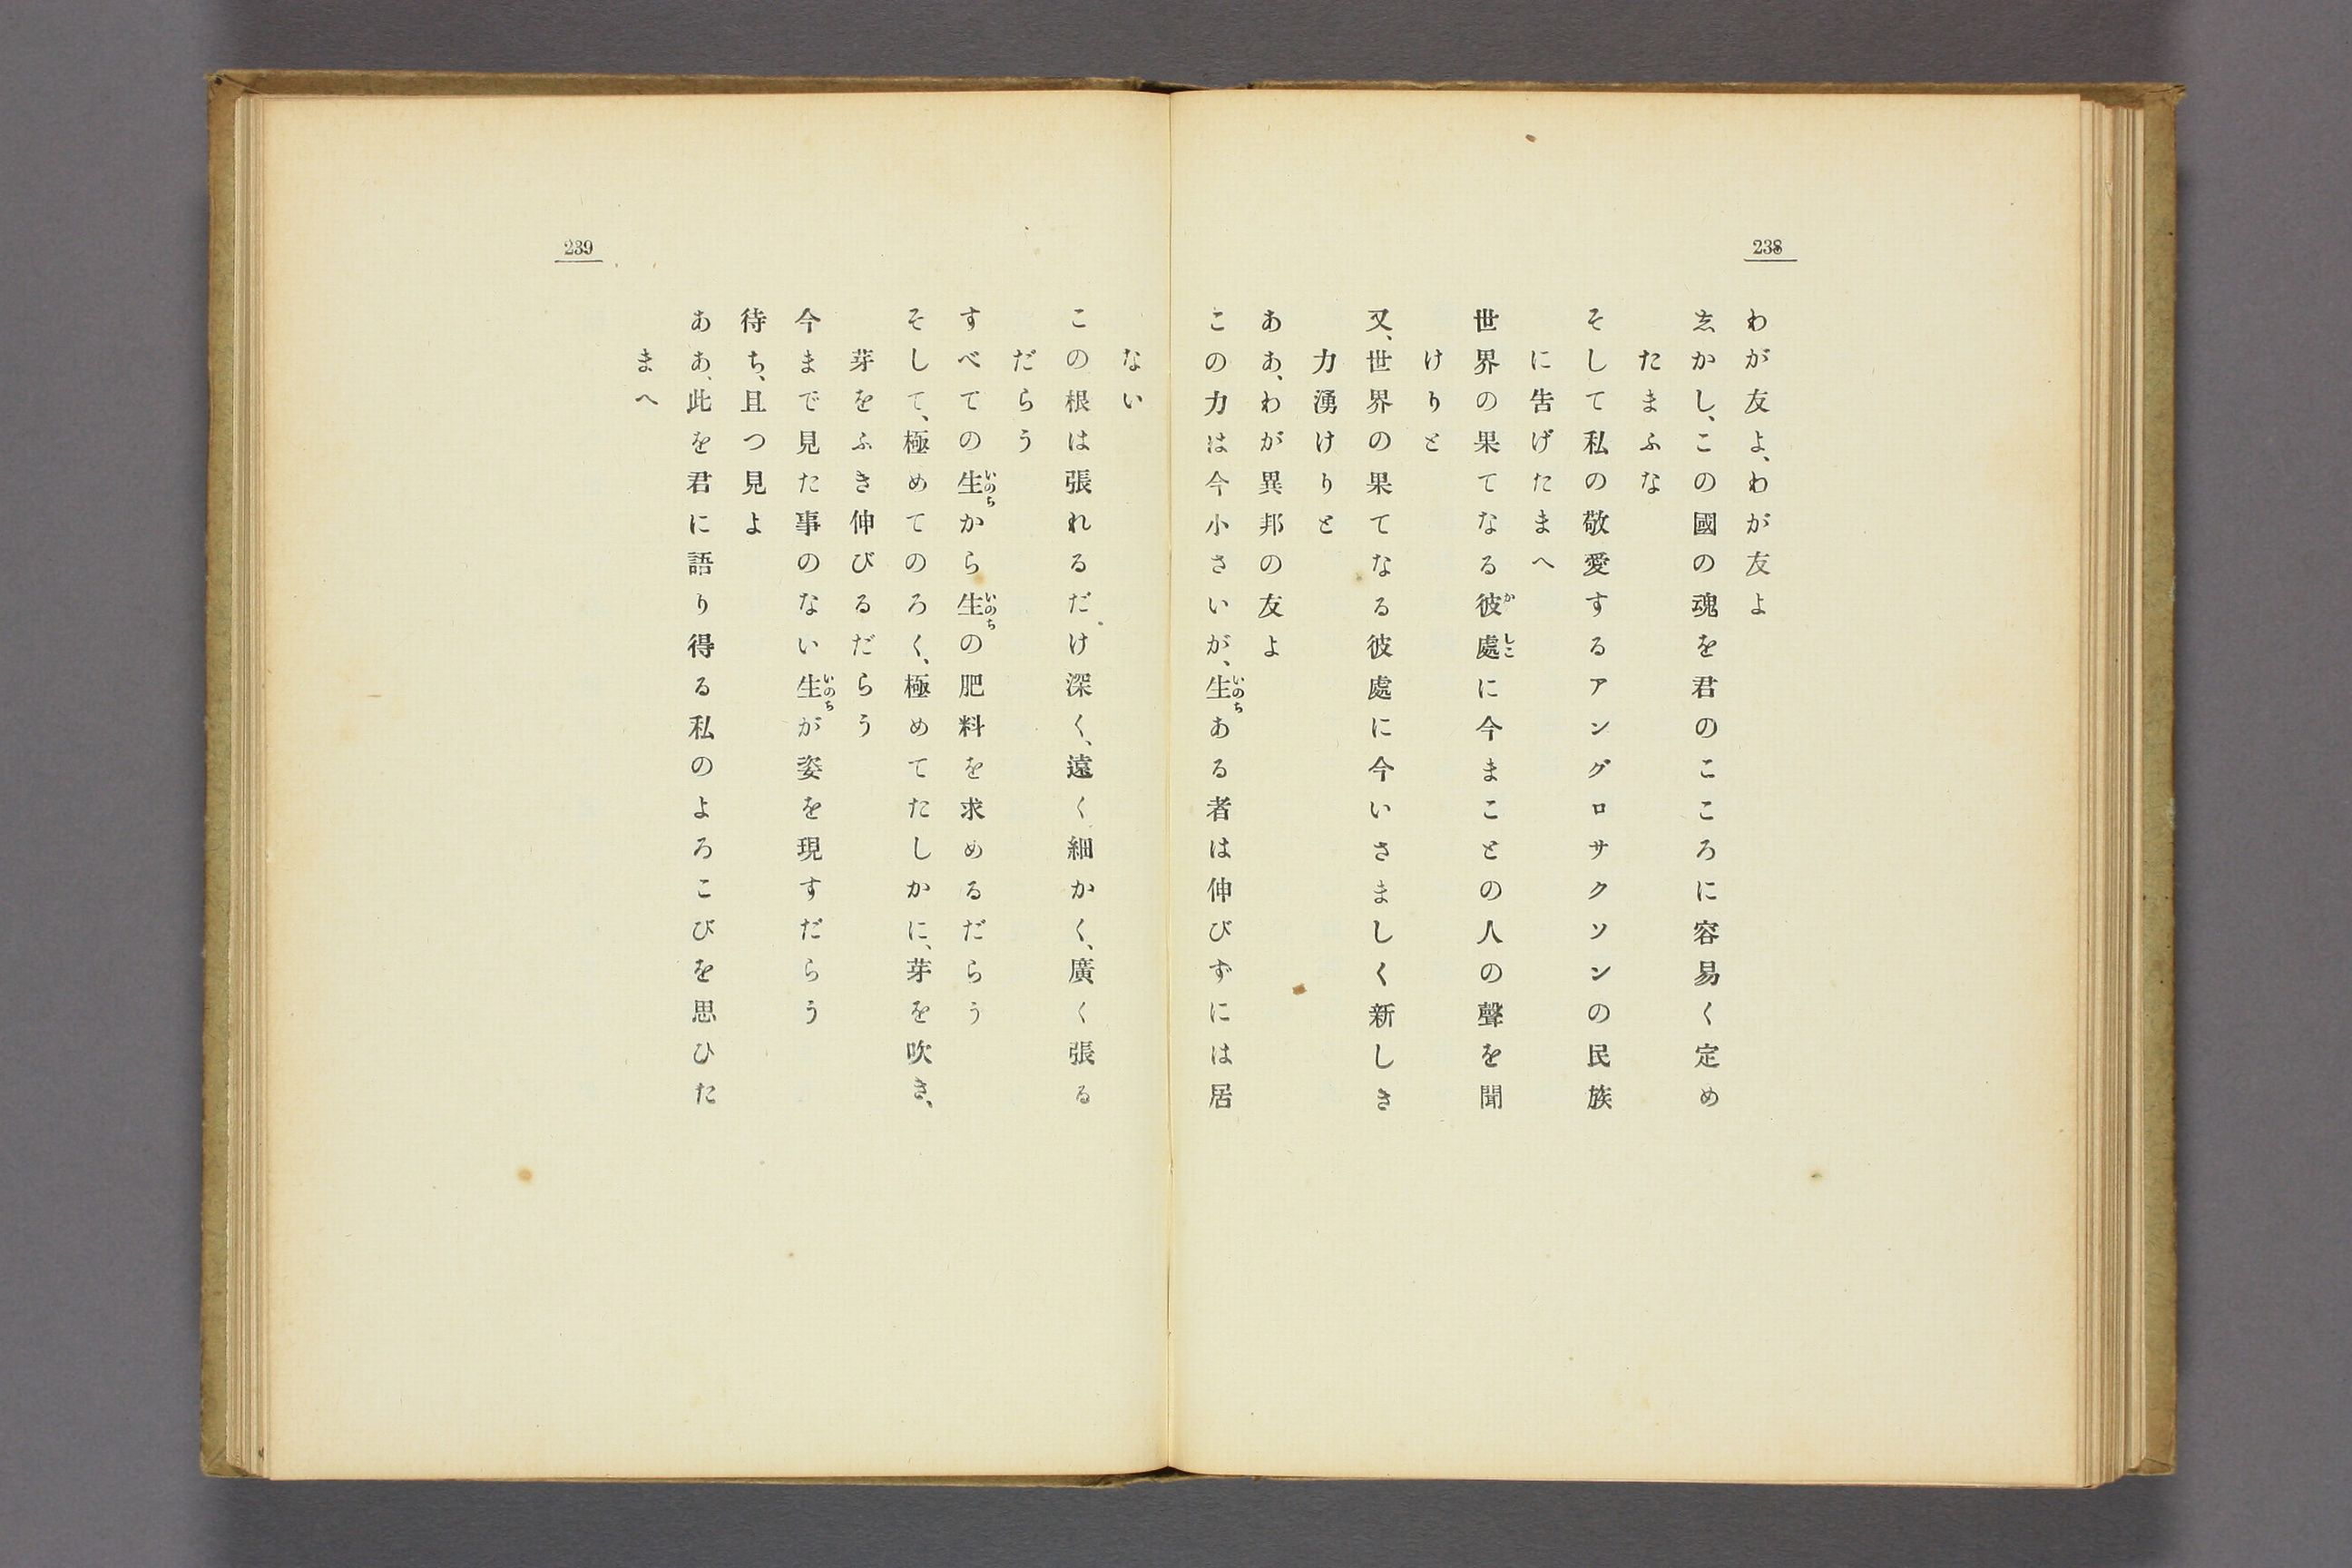 238
わが友よ、わが友よ
志かし、この國の魂を君のこころに容易く定め
たまふな
そして私の敬愛するアングロサクソンの民族
に告げたまへ
世界の果てなる彼處に今まことの人の聲を聞
けりと
又、世界の果てなる彼處に今いさましく新しき
力湧けりと
ああ、わが異邦の友よ
この力は今小さいが、生ある者は伸びずには居
239
ない
この根は張れるだけ深く、遠く細かく、廣く張る
だらう
すべての生から生の肥料を求めるだらう
そして、極めてのろく、極めてたしかに、芽を吹き、
芽をふき伸びるだらう
今まで見た事のない生が姿を現すだらう
待ち、且つ見よ
ああ、此を君に語り得る私のよろこびを思ひた
まへ